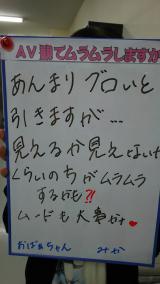 AV観てムラムラしますか
あんまり グロいと
引きますが…
見えるか見えないか
くらいのちがムラムラ
するかも⁈
ムードも大事かナ❤
おばぁちゃん みか